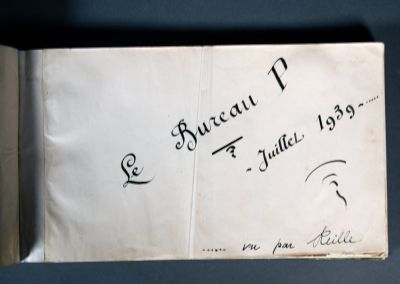 Le Bureau P
- Juillet 1939 - .....
...... vu par Reille